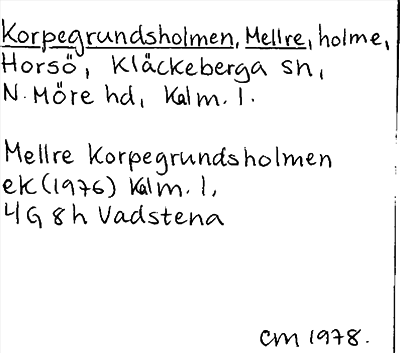 Korpegrundsholmen, Mellre, holme,
Horsö, Kläckeberga sn,
N. Möre hd, Kalm. l.
Mellre Korpegrundsholmen
ek (1976) Kalm. l,
4G 8h Vadstena
CM 1978.